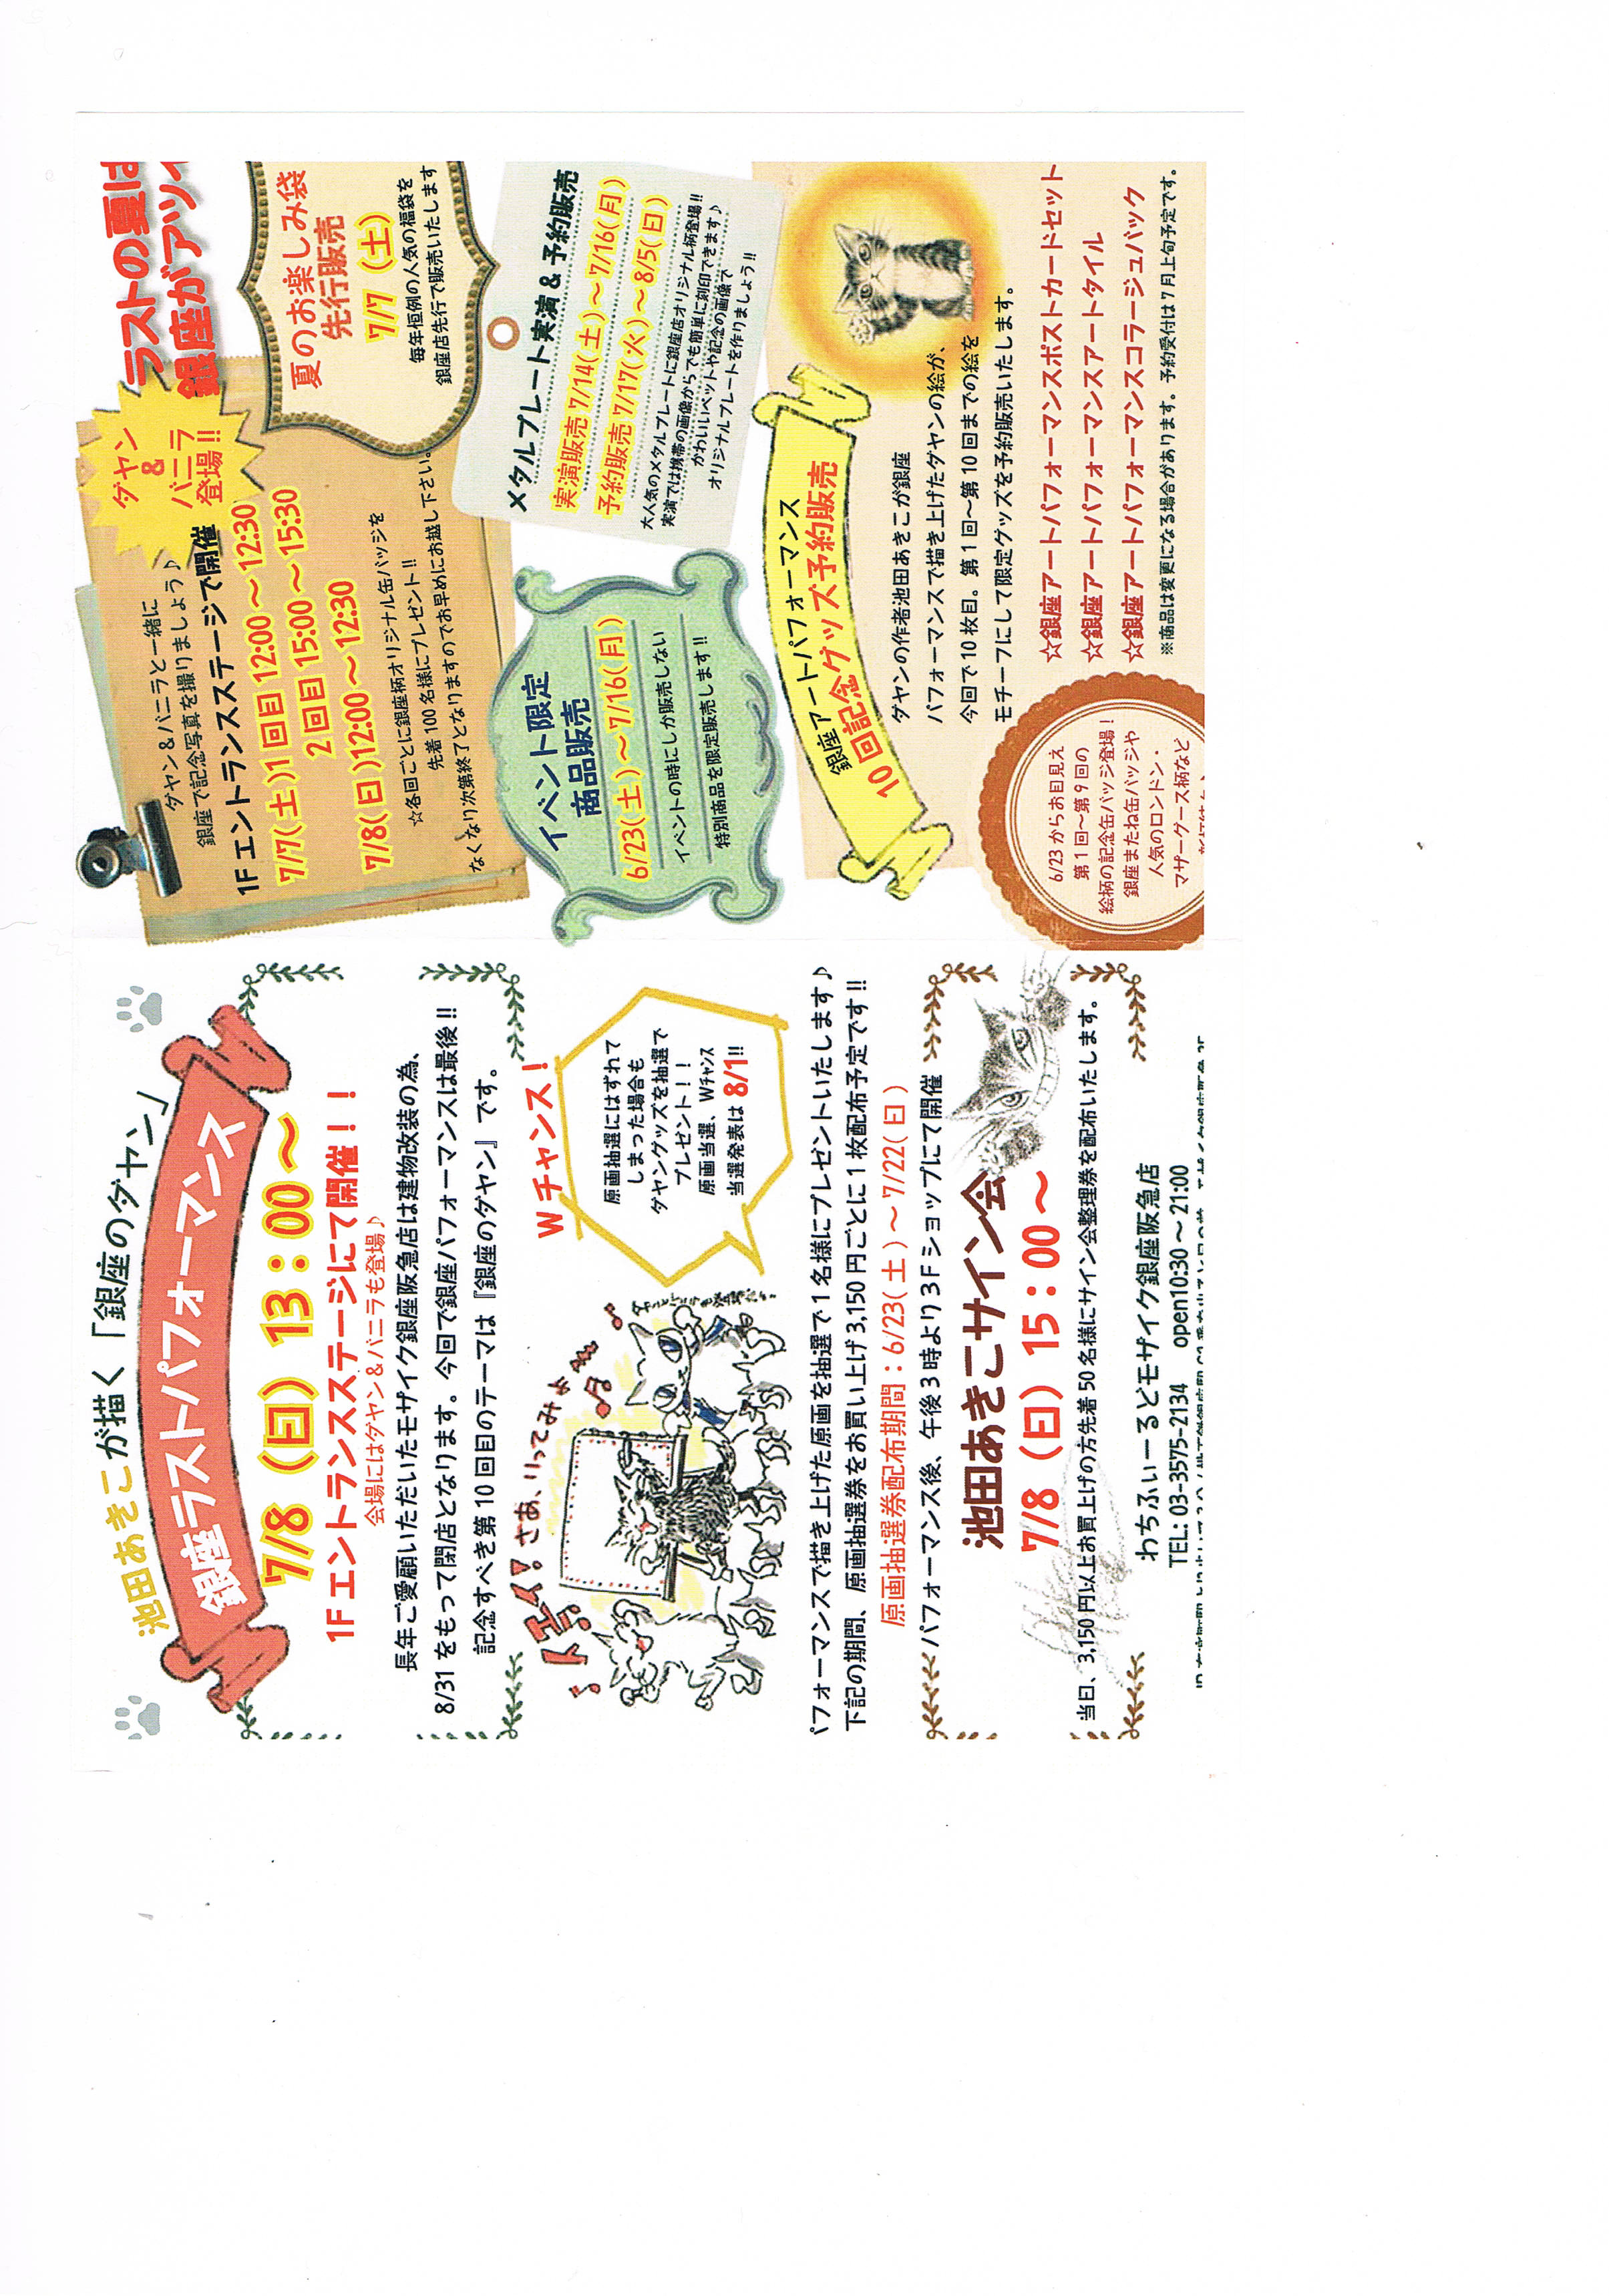 池田あきこが描く「銀座のダヤン」
銀座ラストパフォーマンス
7/8（日）13：00～
1Fエントランスステージにて開催！！
会場にはダヤン&バニラも登場♪
長年ご愛顧いただいたモザイク銀座阪急店は建物改装の為、
8/31をもって閉店となります。今回で銀座パフォーマンスは最後!!
記念すべき第10回目のテーマは『銀座のダヤン』です。
トェイ!さあ、いってみよ
Wチャンス!
原画抽選にはずれて
しまった場合も
ダヤングッズを抽選で
プレゼント！！
原画当選、Wチャンス
当選発表は8/1!!
パフォーマンスで描き上げた原画を抽選で1名様にプレゼントいたします♪
下記の期間、原画抽選券をお買い上げ3,150円ごとに1枚配布予定です!!
原画抽選券配布期間：6/23(土)～7/22(日)
パフォーマンス後、午後3時より3Fショップにて開催
池田あきこサイン会
7/8（日）15：00～
当日、3,150円以上お買上げの方先着50名様にサイン会整理券を配布いたします。
わちふぃーるどモザイク銀座阪急店
TEL: 03-3575-2134 open10:30～21:00
ラストの夏は
銀座がアツイ
ダヤン
&
バニラ
登場!!
ダヤン&バニラと一緒に
銀座で記念写真を撮りましょう♪
1Fエントランスステージで開催
7/7(土)1回目 12:00～12:30
2回目 15:00～15:30
7/8(日)12:00～12:30
☆各回ごとに銀座柄オリジナル缶バッジを
先着100名様にプレゼント!!
なくなり次第終了となりますのでお早めにお越し下さい。
夏のお楽しみ袋
先行販売
7/7（土）
毎年恒例の人気の福袋を
銀座店先行で販売いたします
イベント限定
商品販売
6/23(土)～7/16(月)
イベントの時にしか販売しない
特別商品を限定販売します!!
メタルプレート実演&予約販売
実演販売 7/14(土)～7/16(月)
予約販売 7/17(火)～8/5(日)
大人気のメタルプレートに銀座店オリジナル柄登場!!
実演では携帯の画像からでも簡単に刻印できます♪
かわいいペットや記念の画像で
オリジナルプレートを作りましょう!!
銀座アートパフォーマンス
10回記念グッズ予約販売
ダヤンの作者池田あきこが銀座
パフォーマンスで描き上げたダヤンの絵が、
今回で10枚目。第1回～第10回までの絵を
モチーフにして限定グッズを予約販売いたします。
☆銀座アートパフォーマンスポストカードセット
☆銀座アートパフォーマンスアートタイル
☆銀座アートパフォーマンスコラージュバック
※商品は変更になる場合があります。予約受付は7月上旬予定です。
6/23からお目見え
第1回～第9回の
絵柄の記念缶バッジ登場!
銀座またね缶バッジや
人気のロンドン・
マザーグース柄など